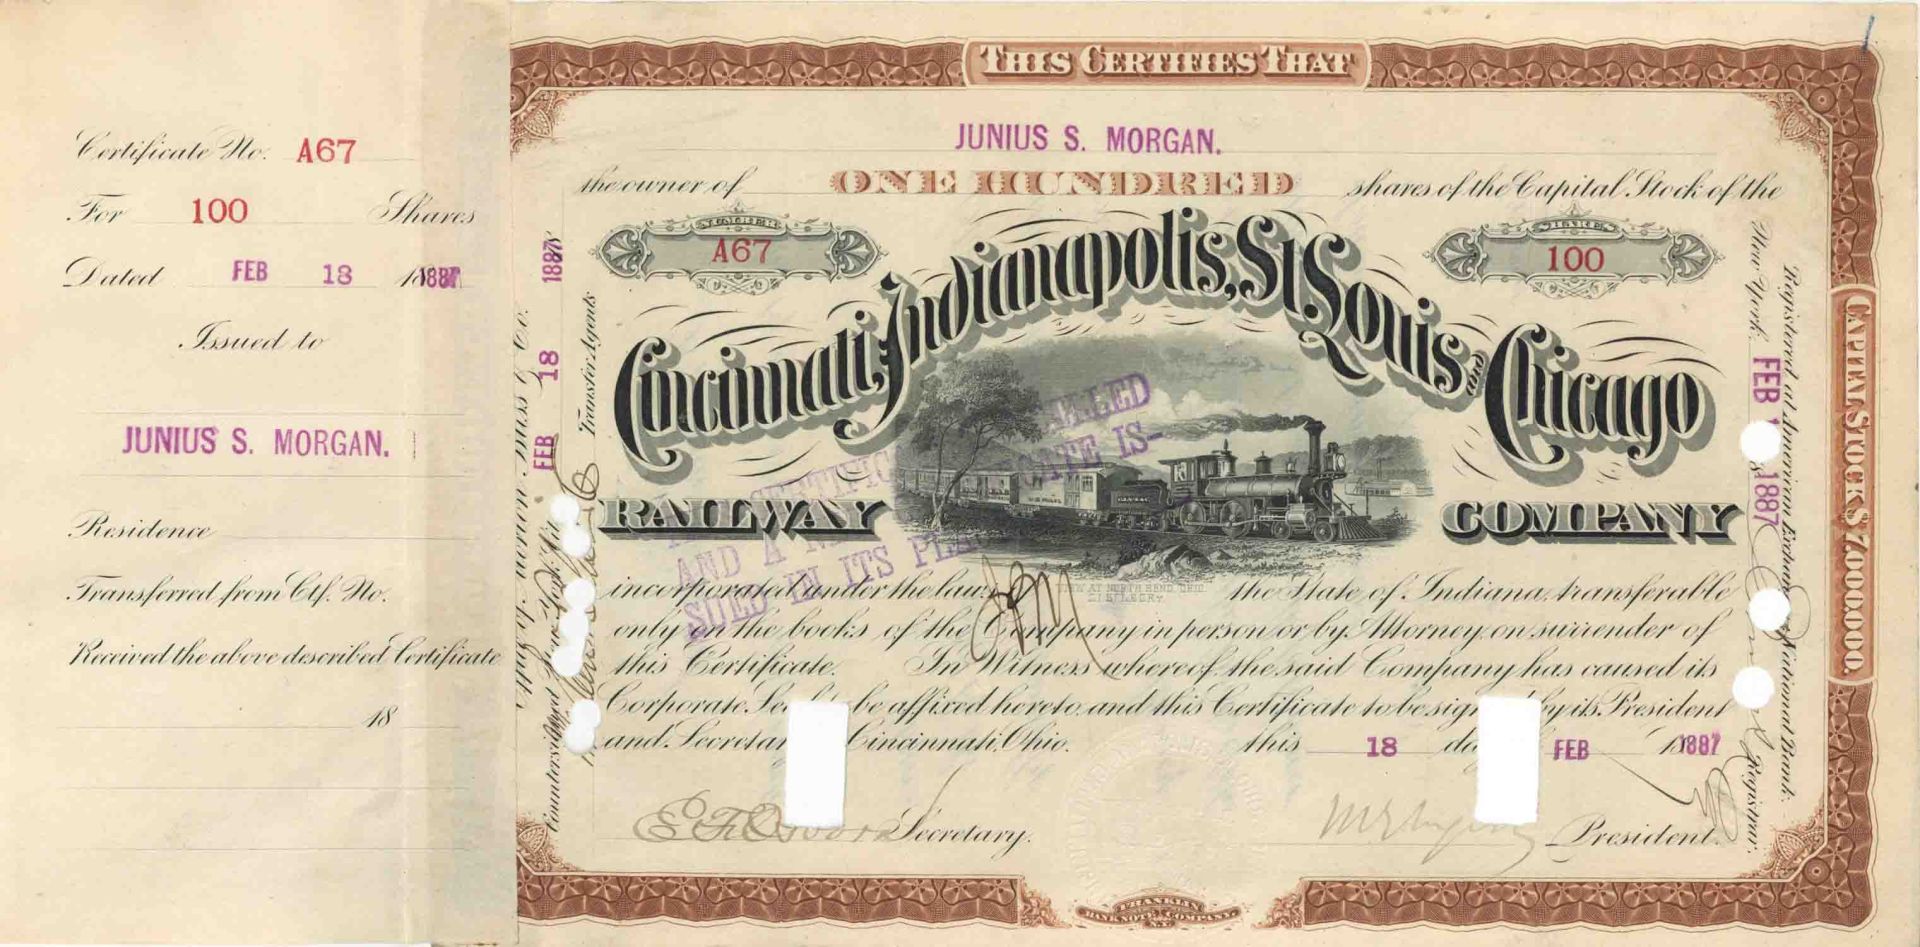 Certificate No. A67
For 100 Shares
Dated FEB 18 1887
Issued to
JUNIUS S. MORGAN.
Residence
Transferred from Ctf. No.
Received the above described Certificate
18
THIS CERTIFIES THAT
JUNIUS S. MORGAN.
the owner of ONE HUNDRED shares of the Capital Stock of the
NUMBER
A67
SHARES
100
Cincinnati, Indianapolis, St. Louis and Chicago
RAILWAY COMPANY
U.S. MAIL
VIEW AT NORTH BEND, OHIO.
incorporated under the laws the State of Indiana, transferable
only on the books of the Company in person or by Attorney on surrender of
this Certificate. In Witness whereof the said Company has caused its
Corporate Seal be affixed hereto and this Certificate to be signed by its President
and Secretary Cincinnati, Ohio. this 18 day FEB 1887
E. F. Osborn Secretary.
M E Ingalls President.
AND A
SUED IN ITS PLACE
Countersigned New York FEB 18 1887
Transfer Agents
New York FEB 1887
Registered at American Exchange National Bank.
Registrar.
CAPITAL STOCK $7,000,000.00.
FRANKLIN
BANKNOTE COMPANY,
N.Y.